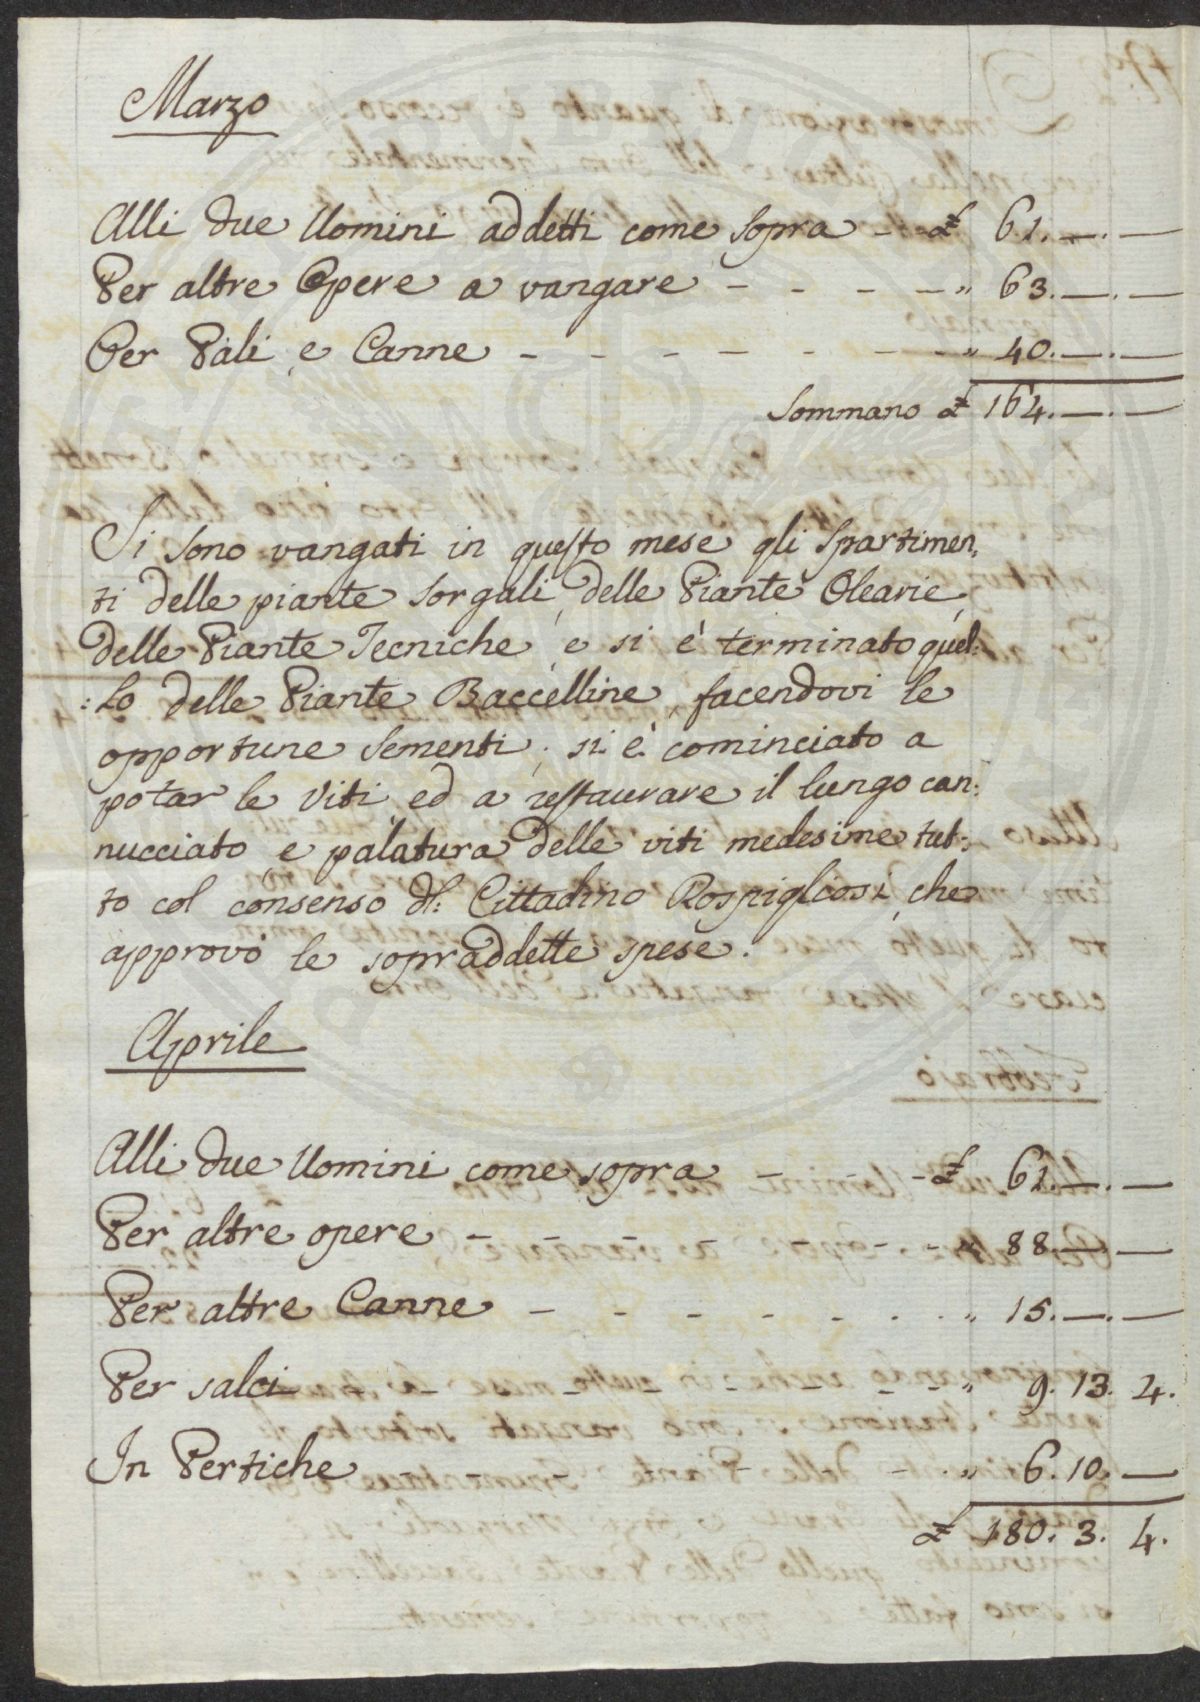 Marzo
Alli due Uomini addetti come sopra - £ 61. —. —
Per altre Opere a vangare - - - - „ 63. —. —
Per Pali, e Canne - - - - - - - „ 40. —. —
Sommano £ 164. —. —
Si sono vangati in questo mese gli Spartimen,
ti delle piante sorguli, delle Piante Olearie,
delle Piante Tecniche, e si è terminato quel:
:lo delle Piante Baccelline, facendovi le
opportune Sementi; si è cominciato a
potar le Viti ed a restaurare il lungo can:
nucciato e palatura delle viti medesime tut:
to col consenso dl: Cittadino Rospigliosi, che
approvò le sopraddette spese.
Aprile
Alli due Uomini come sopra - - £ 61. —. —
Per altre opere - - - - - - - „ 88. —. —
Per altre Canne - - - - - - - „ 15. —. —
Per salci - - - - - - - „ 9. 13. 4.
In Pertiche - - - - - - „ 6. 10. —
£ 180. 3. 4.